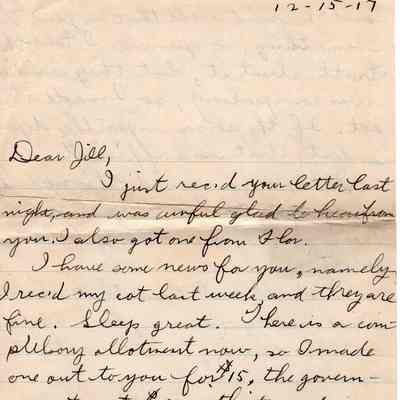 12-15-17
Dear Jill,
I just rec'd your letter last
night, and was awful glad to hear from
you. I also got one from Flor.
I have some news for you, namely
I rec'd my cot last week, and they are
fine. Sleep great. There is a com-
pulsory allotment now, so I made
one out to you for $15, the govern-